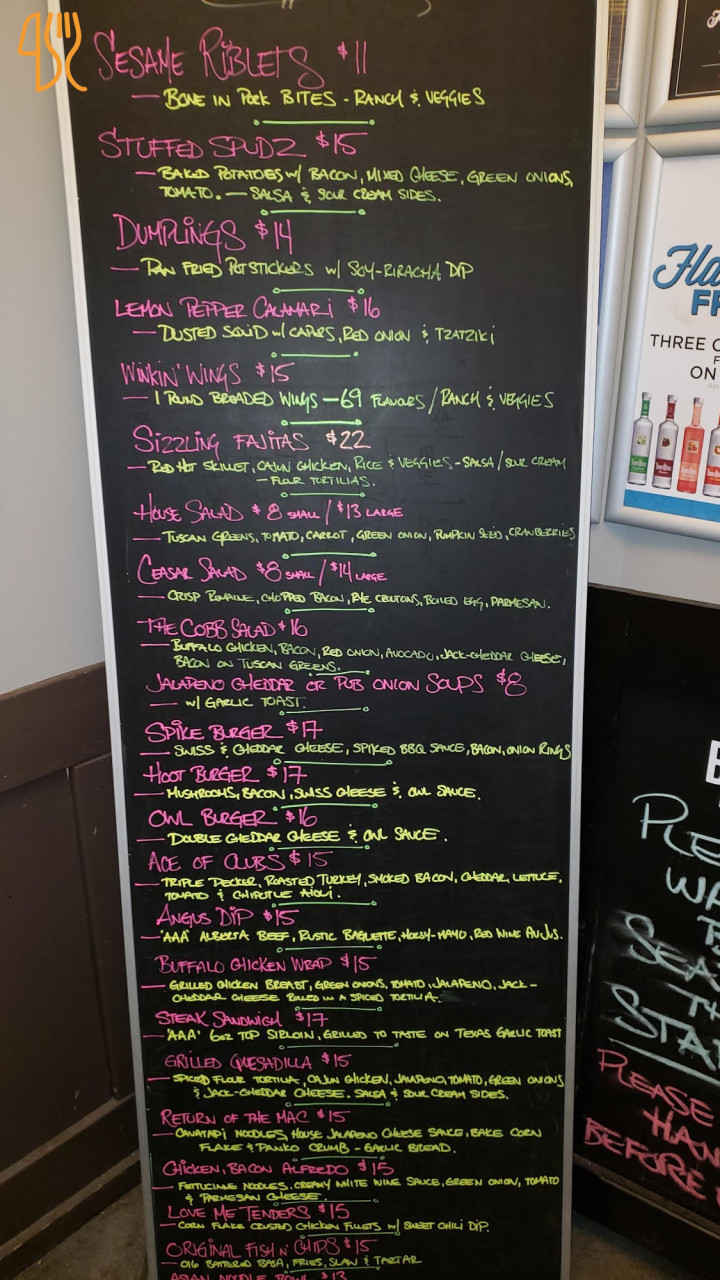 SESAME RIBLETS $11
— BONE IN PORK BITES - RANCH & VEGGIES
STUFFED SPUDZ $15
— BAKED POTATOES W/ BACON, MIXED CHEESE, GREEN ONIONS,
TOMATO. — SALSA & SOUR CREAM SIDES.
DUMPLINGS $14
— PAN FRIED POTSTICKERS W/ SOY-RIRACHA DIP
LEMON PEPPER CALAMARI $16
— DUSTED SQUID W/ CAPERS, RED ONION & TZATZIKI
WINKIN' WINGS $15
— 1 POUND BREADED WINGS — 69 FLAVOURS / RANCH & VEGGIES
SIZZLING FAJITAS $22
— RED HOT SKILLET, CAJUN CHICKEN, RICE & VEGGIES - SALSA / SOUR CREAM
— FLOUR TORTILIAS.
HOUSE SALAD $8 SMALL / $13 LARGE
— TUSCAN GREENS, TOMATO, CARROT, GREEN ONION, PUMPKIN SEED, CRANBERRIES
CEASAR SALAD $8 SMALL / $14 LARGE
— CRISP ROMAINE, CHOPPED BACON, RYE CROUTONS, BOILED EGG, PARMESAN.
THE COBB SALAD $16
— BUFFALO CHICKEN, BACON, RED ONION, AVOCADO, JACK-CHEDDAR CHEESE,
BACON ON TUSCAN GREENS.
JALAPENO CHEDDAR OR PUB ONION SOUPS $8
— W/ GARLIC TOAST.
SPIKE BURGER $17
— SWISS & CHEDDAR CHEESE, SPIKED BBQ SAUCE, BACON, ONION RINGS
HOOT BURGER $17
— MUSHROOMS, BACON, SWISS CHEESE & OWL SAUCE.
OWL BURGER $16
— DOUBLE CHEDDAR CHEESE & OWL SAUCE.
ACE OF CLUBS $15
— TRIPLE DECKER, ROASTED TURKEY, SMOKED BACON, CHEDDAR, LETTUCE,
TOMATO & CHIPOTLE AIOLI.
ANGUS DIP $15
— 'AAA' ALBERTA BEEF, RUSTIC BAGUETTE, HORSY-MAYO, RED WINE AU JUS.
BUFFALO CHICKEN WRAP $15
— GRILLED CHICKEN BREAST, GREEN ONIONS, TOMATO, JALAPENO, JACK-
CHEDDAR CHEESE ROLLED IN A SPICED TORTILIA.
STEAK SANDWICH $17
— 'AAA' 6oz TOP SIRLOIN, GRILLED TO TASTE ON TEXAS GARLIC TOAST
GRILLED QUESADILLA $15
— SPICED FLOUR TORTILIA, CAJUN CHICKEN, JALAPENO, TOMATO, GREEN ONIONS
& JACK-CHEDDAR CHEESE. SALSA & SOUR CREAM SIDES.
RETURN OF THE MAC $15
— CAVATAPI NOODLES, HOUSE JALAPENO CHEESE SAUCE, BAKE CORN
FLAKE & PANKO CRUMB - GARLIC BREAD.
CHICKEN, BACON ALFREDO $15
— FETTUCINE NOODLES. CREAMY WHITE WINE SAUCE, GREEN ONION, TOMATO
& PARMESAN CHEESE.
LOVE ME TENDERS $15
— CORN FLAKE CRUSTED CHICKEN FILLETS W/ SWEET CHILI DIP.
ORIGINAL FISH N' CHIPS $15
— OIG BATTERED BASA, FRIES, SLAW & TARTAR
ASIAN NOODLE BOWL $13
THREE
ON
PLE
WA
SEA
TH
STA
PLEASE
HAN
BEFORE